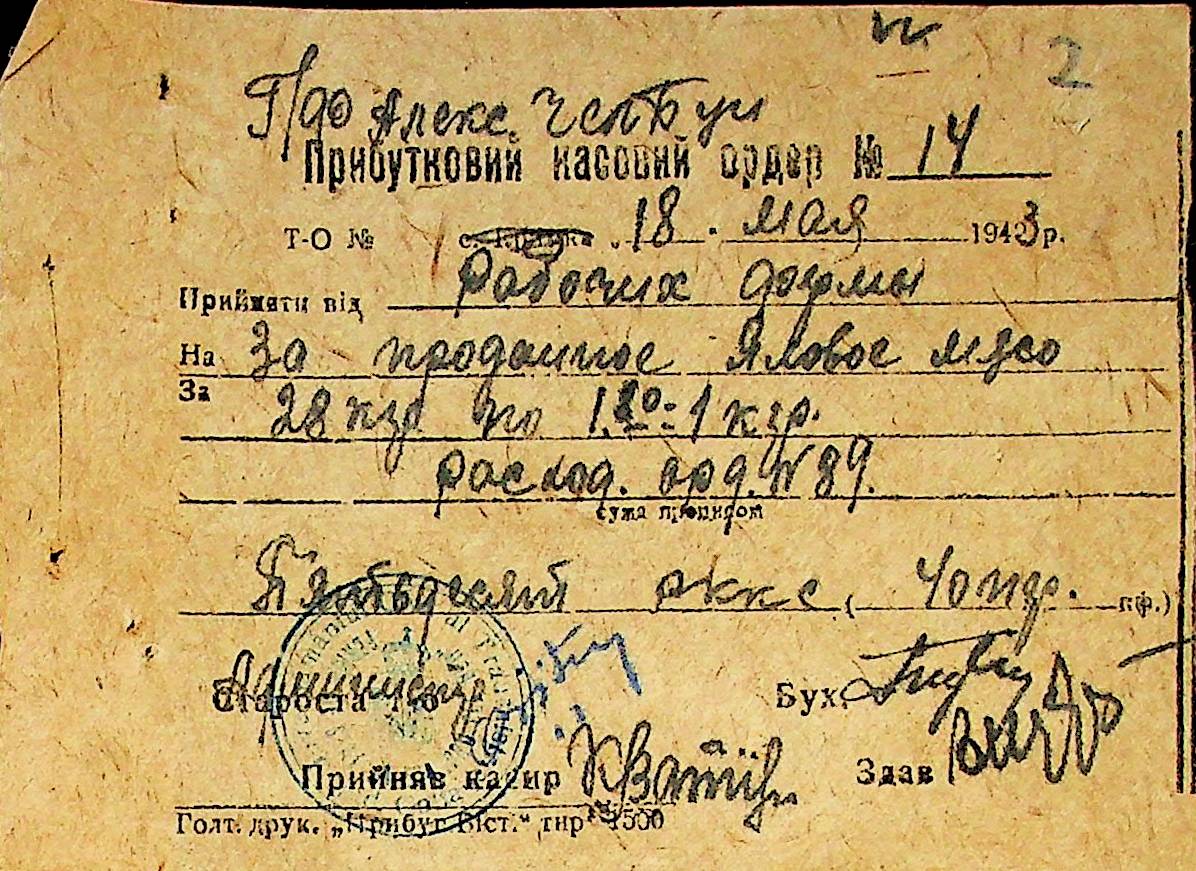 2
Прибутковий касовий ордер № 14
Т-О № "18. мая 1943 р.
Прийняти від Рабочих фермы
На За проданное Яловое мясо
За 28 кгр по 1.80 = 1 кгр.
расход. орд. № 89.
сума прописом
Пятьдесят рккс ( 40 пф. пф.)
Староста Т-О Администр Бух.
Прийняв касир Здав
Голт. друк. „Прибуг. Віст." тир 1500